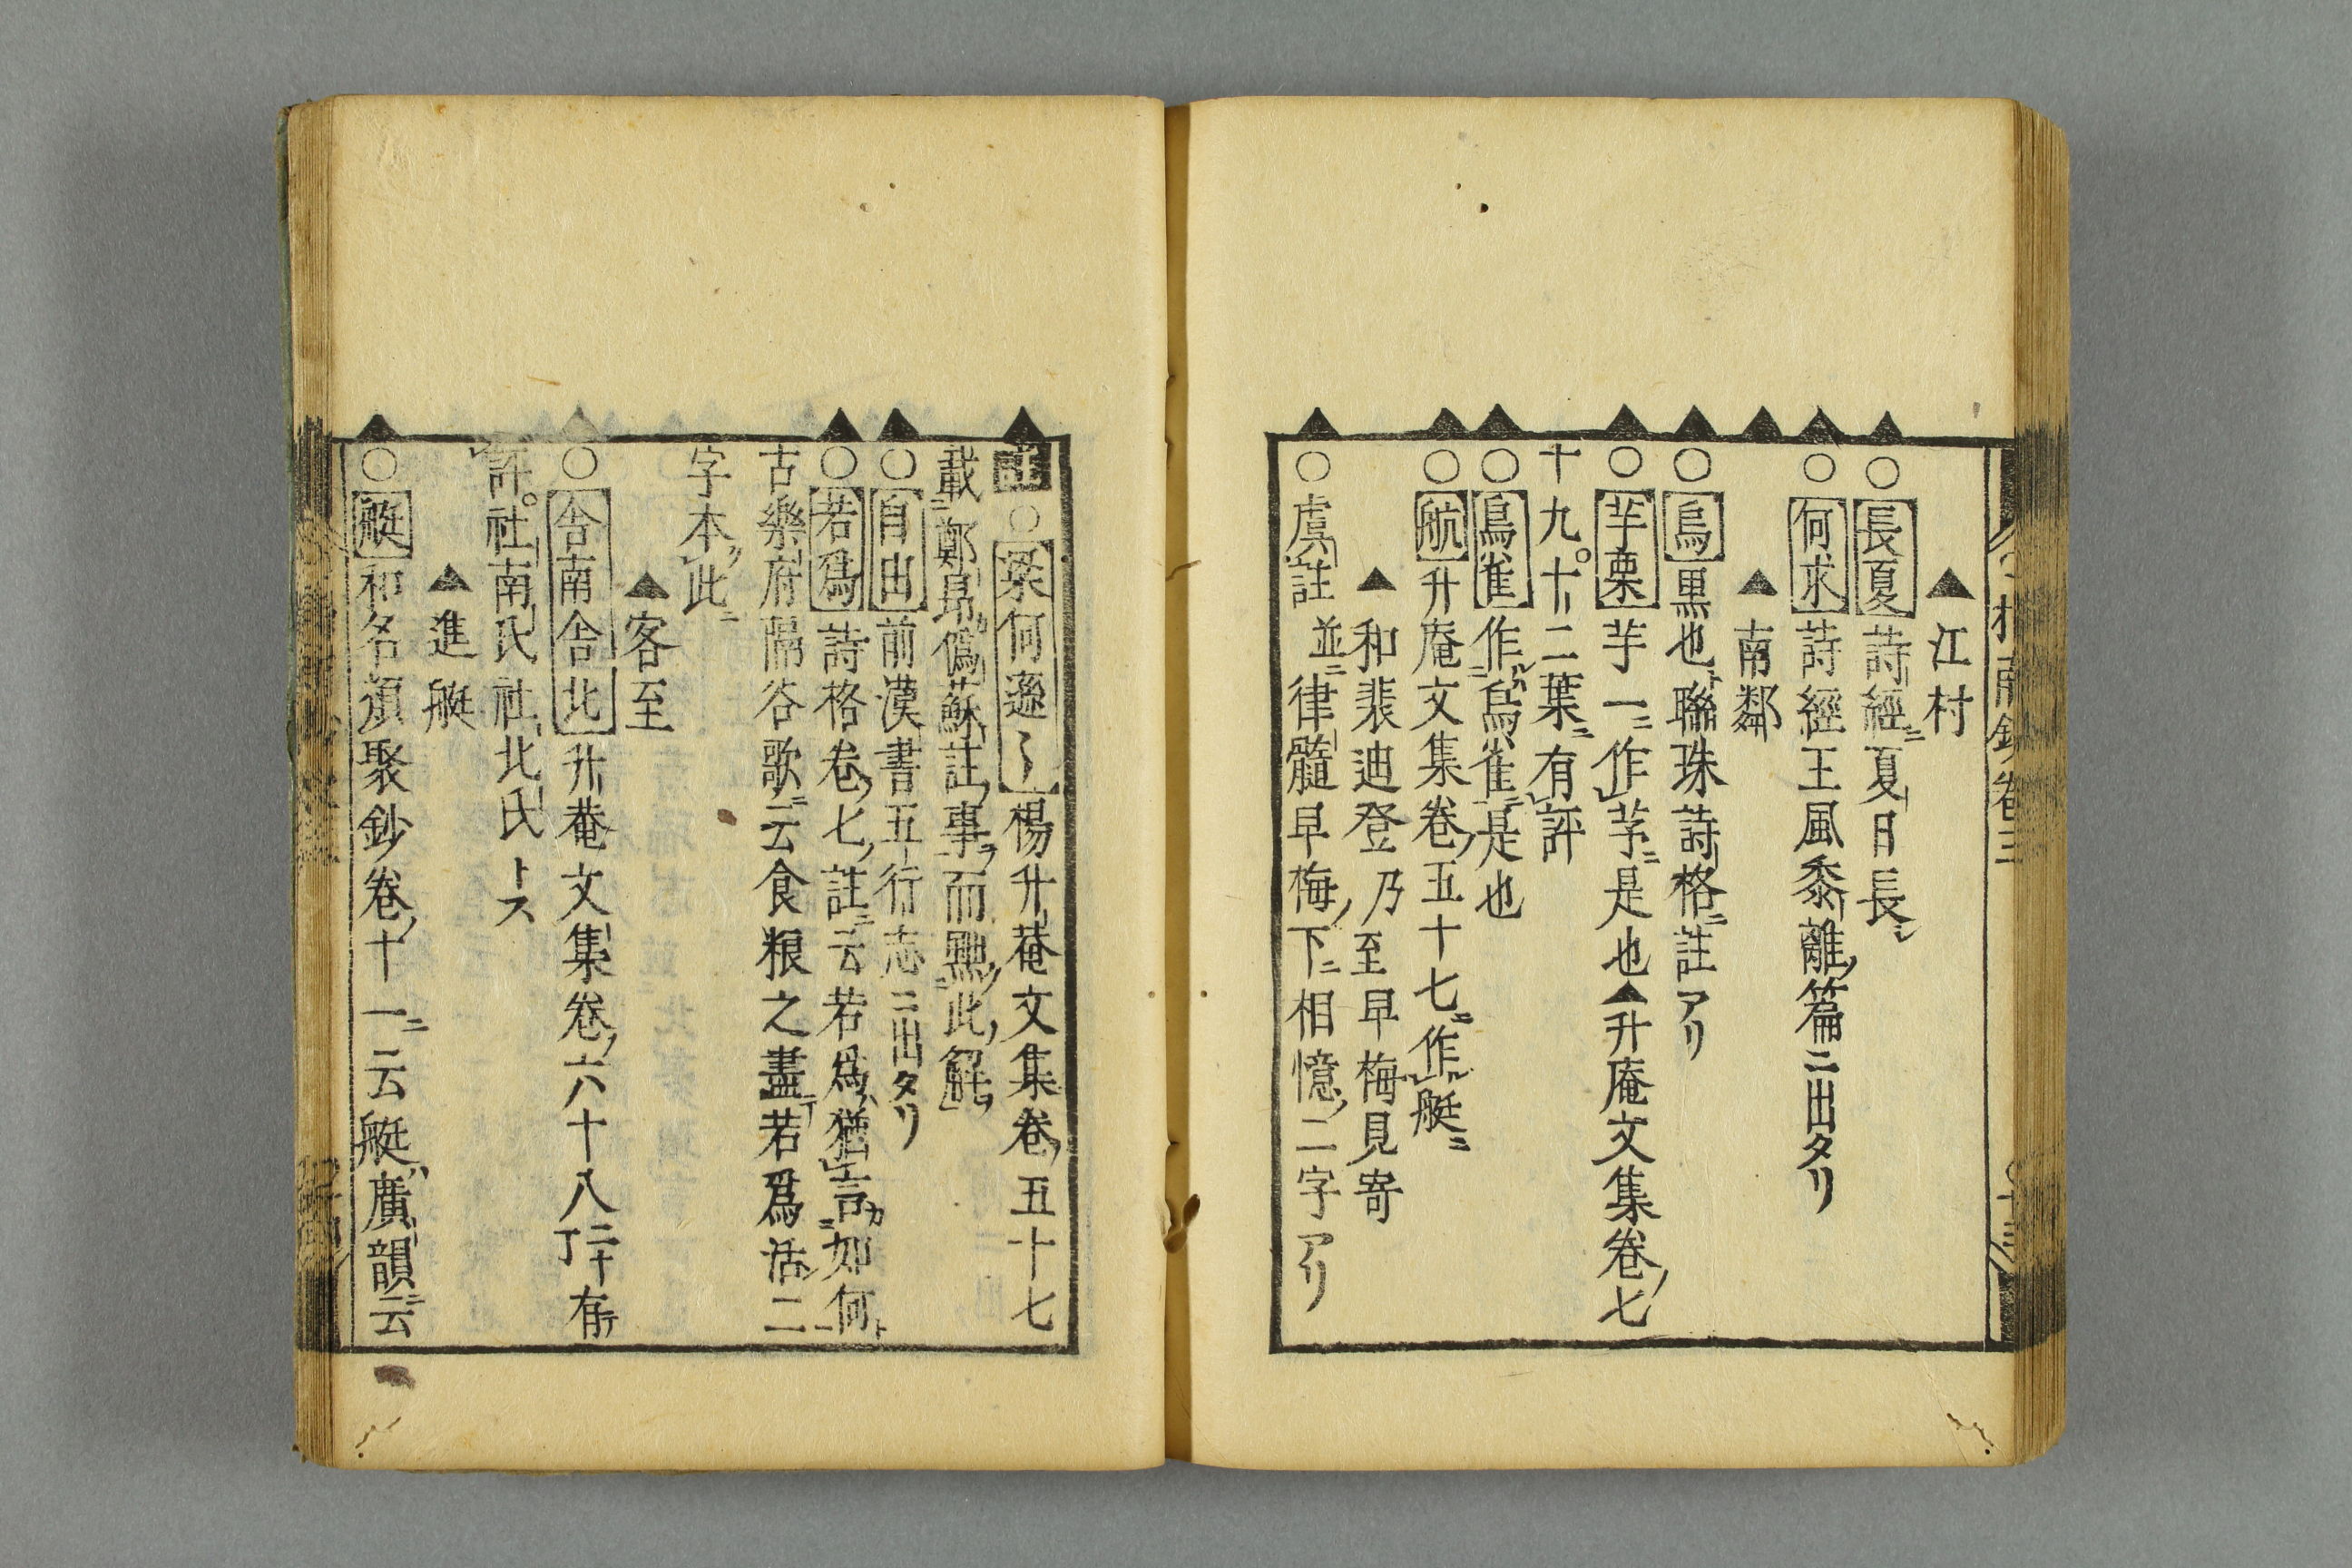 ▲江村
○長夏詩經ニ夏ノ日長シ
○何求詩經王風黍離ノ篇ニ出タリ
▲南鄰
○烏黒也ト聯珠詩格ニ註アリ
○芋栗芋一ニ作芧ニ是也▲升庵文集卷ノ七
十九。十二葉ニ有評
○鳥雀作ルハ烏雀ニ是也
○航升庵文集卷ノ五十七ニ作ル艇ニ
▲和裴迪登乃至早梅見寄
○虞註並ニ律髓早梅ノ下ニ相憶ノ二字アリ
註○梁何遜〻楊升菴文集卷ノ五十七
載ニ鄭昂カ僞蘇註ノ事ヲ而黜ク此ノ解ヲ
○自由前漢書五行志ニ出タリ
○若爲詩格卷ノ七ノ註ニ云若爲ハ猶言カ如何ト
古樂府隔谷歌ニ云食粮之盡若爲活二
字本ク此ニ
▲客至
○舍南舍北升菴文集卷ノ六十八二十丁有
評。社南氏社北氏トス
▲進艇
○艇和名類聚鈔卷ノ十一ニ云艇ハ廣韻ニ云